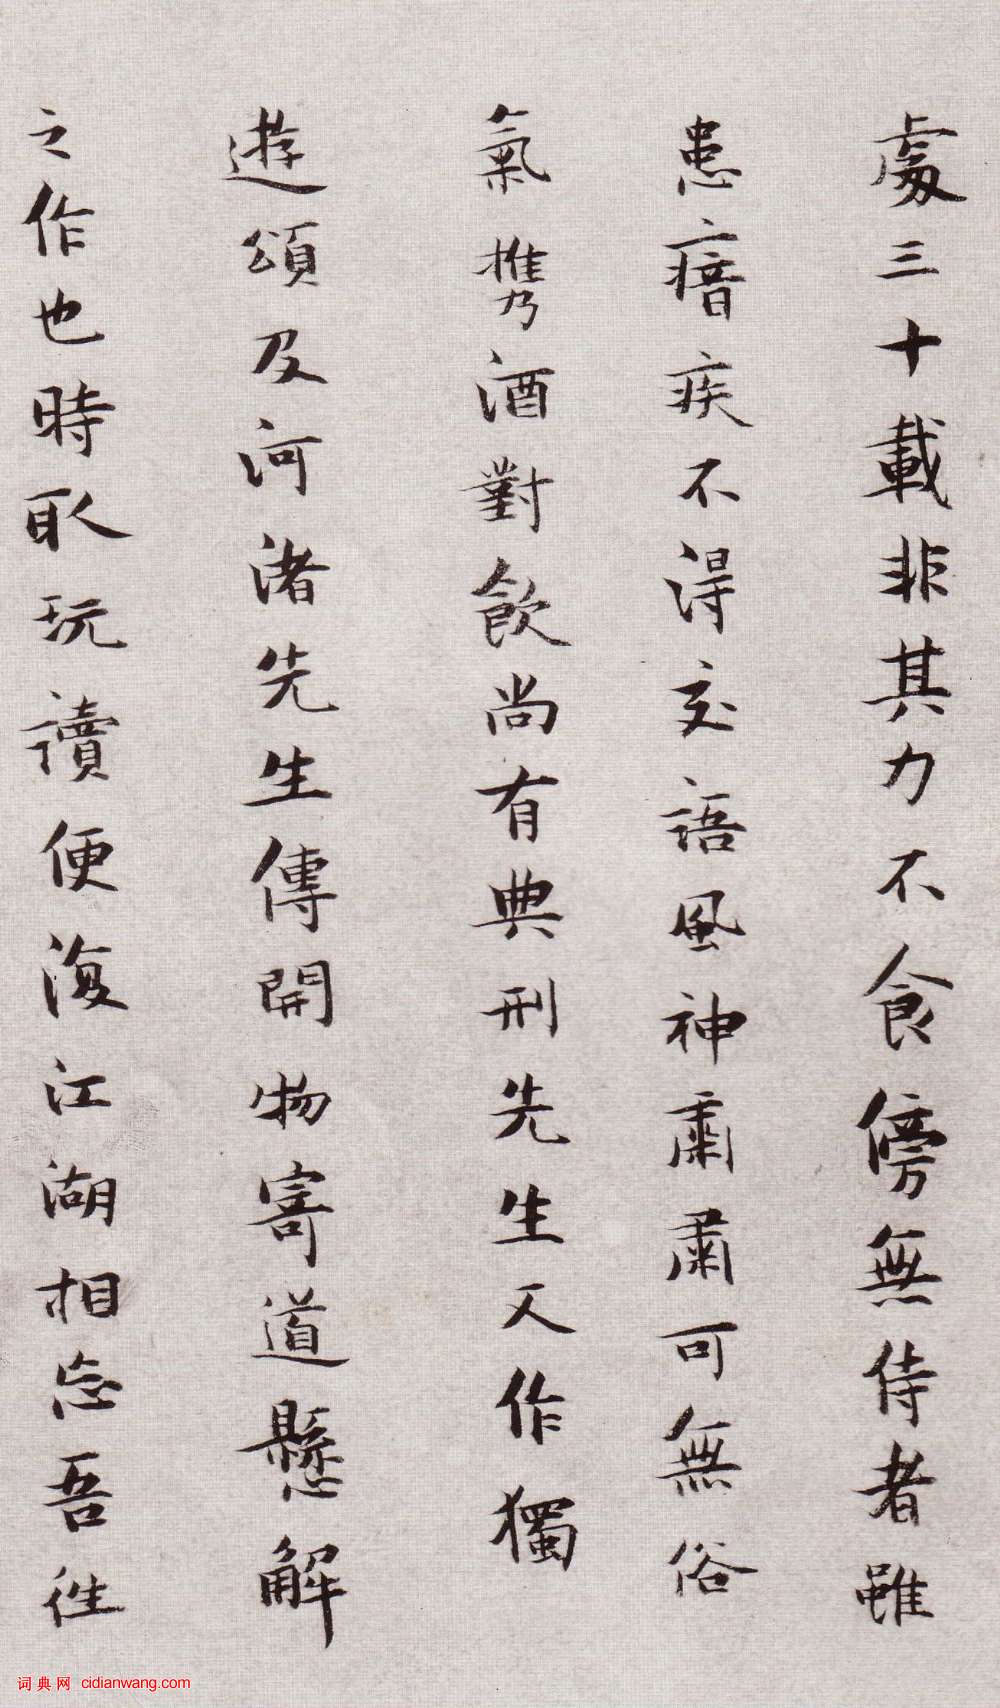 處三十載非其力不食傍無侍者雖
患瘖疾不得交語風神肅肅可無俗
氣攜酒對飲尚有典刑先生又作獨
遊頌及河渚先生傳開物寄道懸解
之作也時取玩讀便復江湖相忘吾往
词典网 cidianwang.com